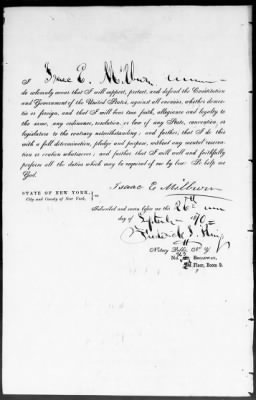 I Isaac E. Milburn
do solemnly swear that I will support, protect, and defend the Constitution
and Government of the United States, against all enemies, whether domes-
tic or foreign, and that I will bear true faith, allegiance and loyalty to
the same, any ordinance, resolution or law of any State, convention, or
legislation to the contrary notwithstanding; and further, that I do this
with a full determination, pledge and purpose, without any mental reserva-
tion or evasion whatsoever; and further that I will well and faithfully
perform all the duties which may be required of me by law. So help me
God.
Isaac E Milburn
STATE OF NEW YORK,
City and County of New York,
Subscribed and sworn before me this 26th
day of September 1870
Frederick J. King
Notary Public N. Y.
No. BROADWAY,
Floor, Room 9.